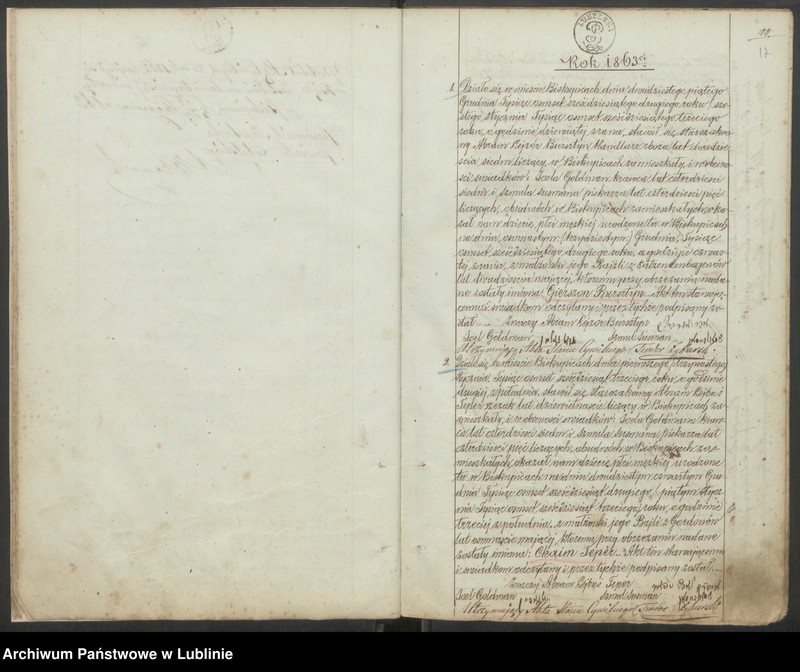 LUBELSKI
19.
17
Rok 1863.
1. Działo się w mieście Biskupicach dnia dwudziestego piątego
Grudnia Tysiąc osmset sześćdziesiątego drugiego roku / szó-
stego stycznia Tysiąc osmset sześćdziesiątego trzeciego
roku, o godzinie dziewiątej z rana, stawił się Starozakon-
ny Abram Bursztyn Handlarz zboża lat dwadzie-
ścia siedm liczący, w Biskupicach zamieszkały, i w obecno-
ści świadków: Joela Goldman krawca lat czterdzieści
siedm i Szmula Susmana piekarza lat czterdzieści pięć
liczących, obudwóch w Biskupicach zamieszkałych, oka-
zał nam dziecię płci męskiej urodzone tu w Biskupicach
na dniu osmnastym / trzydziestym / Grudnia, Tysiąc
osmset sześćdziesiątego drugiego roku, o godzinie czwar-
tej z rana, z małżonki jego Rajzli z
lat dwadzieścia mającej, któremu przy obrzezaniu nada-
ne zostały imiona: Gierszon Bursztyn. Akt ten stawają-
cemu i świadkom odczytany i przez tychże podpisany zo-
stał. _ Znaczy Abram Bursztyn
Joel Goldman Szmul Susman
Utrzymujący Akta Stanu Cywilnego
2. Działo się w mieście Biskupicach dnia pierwszego / trzynastego /
Stycznia, Tysiąc osmset sześćdziesiąt trzeciego roku, o godzinie
drugiej z południa, stawił się starozakonny Abram
Teper rzezak lat dziewiętnaście liczący w Biskupicach za-
mieszkały, i w obecności świadków Joela Goldmana kraw-
ca lat czterdzieści siedm i Szmula Susmana piekarza lat
czterdzieści pięć liczących, obudwóch w Biskupicach za-
mieszkałych, okazał nam dziecię płci męskiej urodzone
tu w Biskupicach na dniu dwudziestym czwartym Gru-
dnia Tysiąc osmset sześćdziesiąt drugiego, / piątym stycz-
nia Tysiąc osmset sześćdziesiąt trzeciego / roku, o godzinie
trzeciej z południa, z małżonki jego Rajzli z Gordonów
lat osmnaście mającej, któremu przy obrzezaniu nadane
zostały imiona: Chaim Teper. _ Akt ten stawającemu
i świadkom odczytany i przez tychże podpisany został. _
Znaczy Abram Teper
Joel Goldman Szmul Susman
Utrzymujący Akta Stanu Cywilnego
Archiwum Państwowe w Lublinie